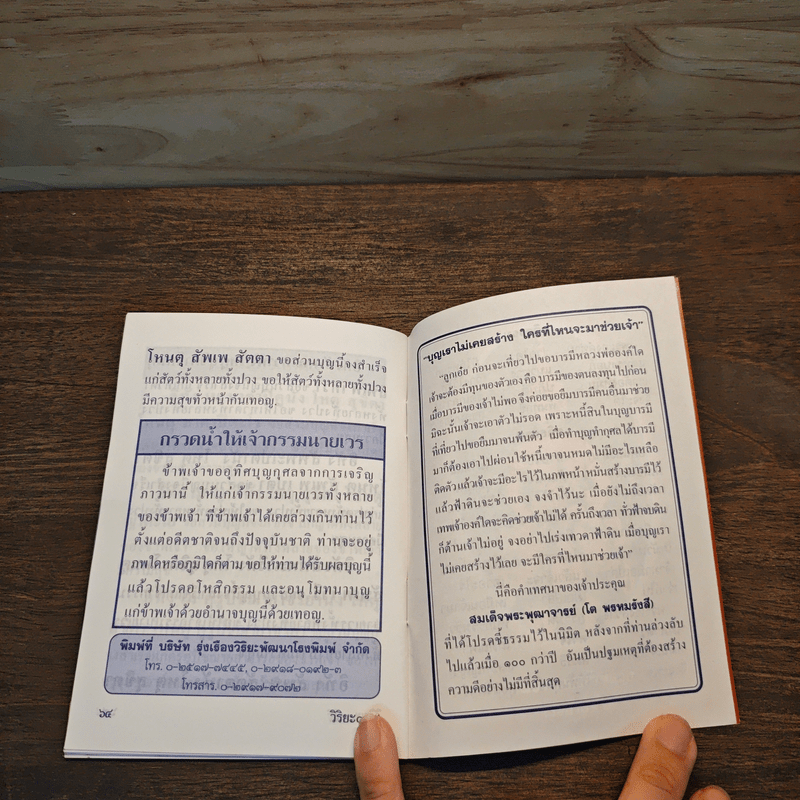 โหนตุ สัพเพ สัตตา ขอส่วนบุญนี้จงสำเร็จ
แก่สัตว์ทั้งหลายทั้งปวง ขอให้สัตว์ทั้งหลายทั้งปวง
มีความสุขทั่วหน้ากันเทอญ.
กรวดน้ำให้เจ้ากรรมนายเวร
ข้าพเจ้าขออุทิศบุญกุศลจากการเจริญ
ภาวนานี้ ให้แก่เจ้ากรรมนายเวรทั้งหลาย
ของข้าพเจ้า ที่ข้าพเจ้าได้เคยล่วงเกินท่านไว้
ตั้งแต่อดีตชาติจนถึงปัจจุบันชาติ ท่านจะอยู่
ภพใดหรือภูมิใดก็ตาม ขอให้ท่านได้รับผลบุญนี้
แล้วโปรดอโหสิกรรม และอนุโมทนาบุญ
แก่ข้าพเจ้าด้วยอำนาจบุญนี้ด้วยเทอญ.
พิมพ์ที่ บริษัท รุ่งเรืองวิริยะพัฒนาโรงพิมพ์ จำกัด
โทร. ๐-๒๕๑๗-๗๔๔๕, ๐-๒๙๑๘-๐๑๙๒-๓
โทรสาร. ๐-๒๙๑๗-๙๐๗๒
๖๔
วิริยะ
"บุญเราไม่เคยสร้าง ใครที่ไหนจะมาช่วยเจ้า"
"ลูกเอ๋ย ก่อนจะเที่ยวไปขอบารมีหลวงพ่อองค์ใด
เจ้าจะต้องมีทุนของตัวเอง คือ บารมีของตนลงทุนไปก่อน
เมื่อบารมีของเจ้าไม่พอ จึงค่อยขอยืมบารมีคนอื่นมาช่วย
มิฉะนั้นเจ้าจะเอาตัวไม่รอด เพราะหนี้สินในบุญบารมี
ที่เที่ยวไปขอยืมมาจนพ้นตัว เมื่อทำบุญทำกุศลได้บารมี
มาก็ต้องเอาไปผ่อนใช้หนี้เขาจนหมดไม่มีอะไรเหลือ
ติดตัวแล้วเจ้าจะมีอะไรไว้ในภพหน้า หมั่นสร้างบารมีไว้
แล้วฟ้าดินจะช่วยเอง จงจำไว้นะ เมื่อยังไม่ถึงเวลา
เทพเจ้าองค์ใดจะคิดช่วยเจ้าไม่ได้ ครั้นถึงเวลา ทั่วฟ้าจบดิน
ก็ต้านเจ้าไม่อยู่ จงอย่าไปเร่งเทวดาฟ้าดิน เมื่อบุญเรา
ไม่เคยสร้างไว้เลย จะมีใครที่ไหนมาช่วยเจ้า"
นี่คือคำเทศนาของเจ้าประคุณ
สมเด็จพระพุฒาจารย์ (โต พรหมรังสี)
ที่ได้โปรดชี้ธรรมไว้ในนิมิต หลังจากที่ท่านล่วงลับ
ไปแล้วเมื่อ ๑๐๐ กว่าปี อันเป็นปฐมเหตุที่ต้องสร้าง
ความดีอย่างไม่มีที่สิ้นสุด